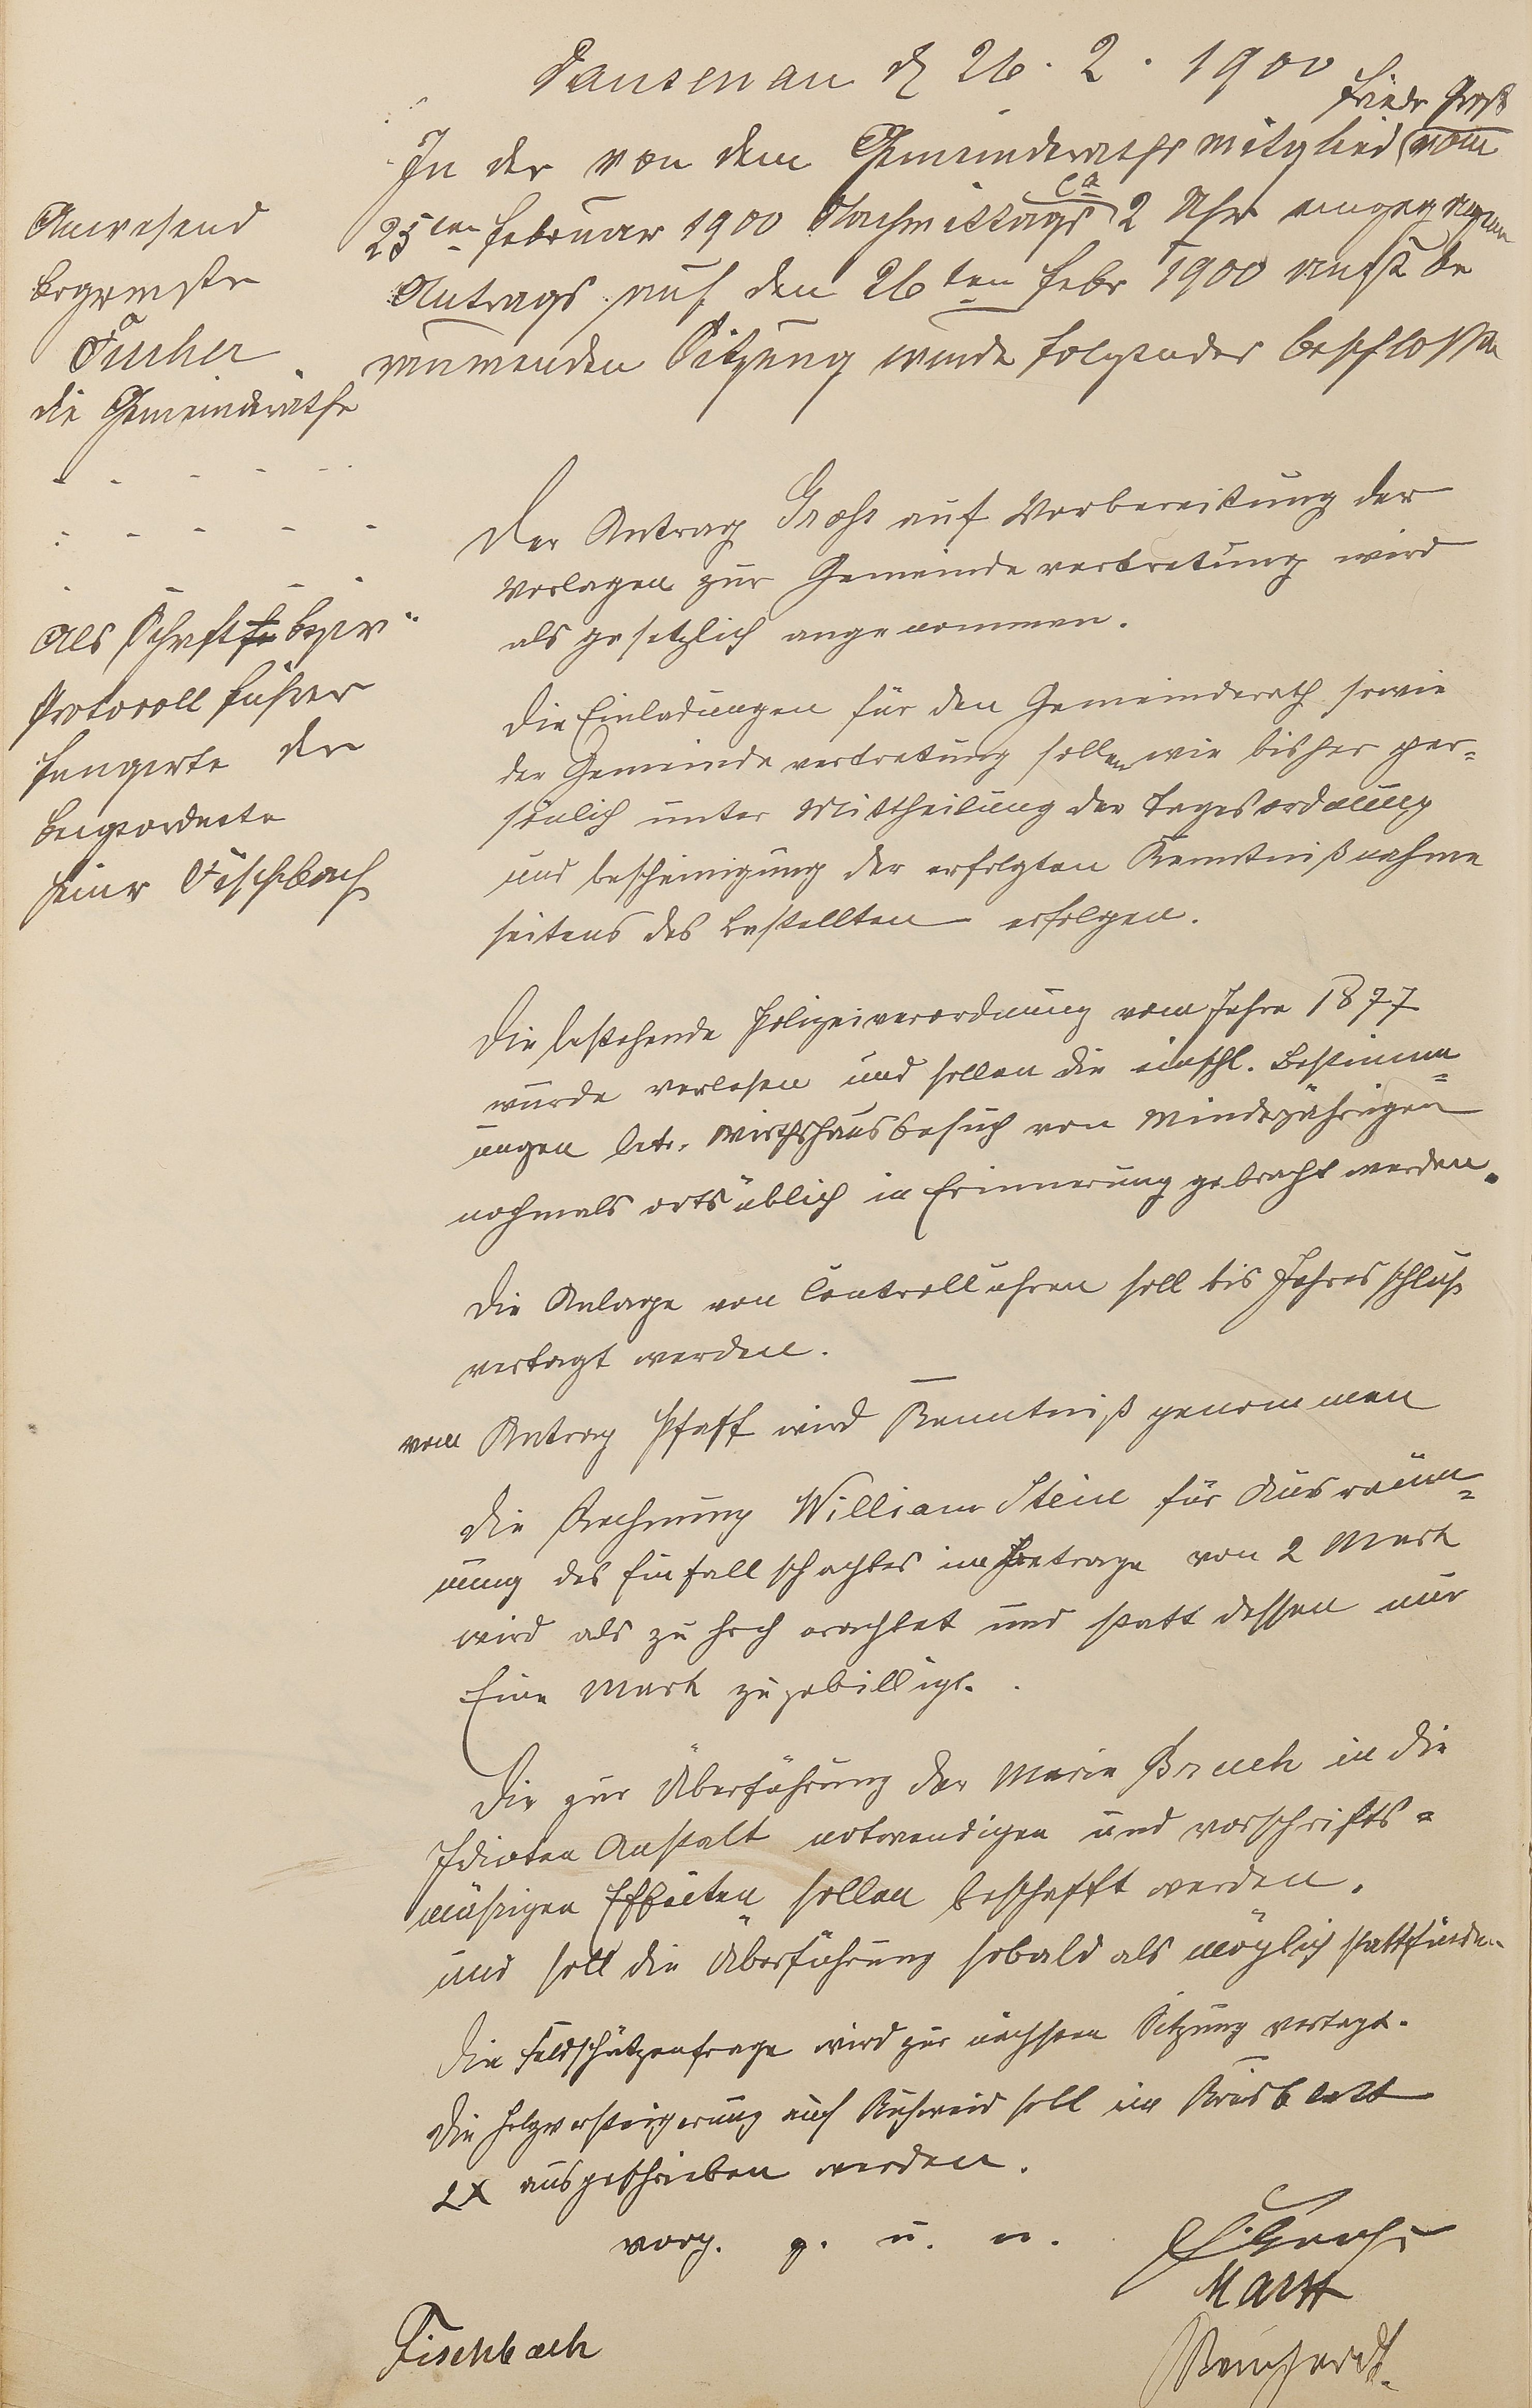 Dausenau d 26. 2. 1900
Friedr Groß
In der von dem Gemeinderathsmitglied vom
25ten Februar 1900 Nachmittags ca 2 Uhr eingegangenen
Antrags auf den 26ten Febr 1900 anbe
raumenden Sitzung wurde folgendes beschlossen
Anwesend
Bürgermstr
Fischer
die Gemeinderäthe
Als Schrift bezw.
Protocoll führer
fungirte der
Beigeordnete
Heinr Fischbach
Der Antrag Groß auf Vorbereitung der
Vorlagen zur Gemeindevertretung wird
als gesetzlich angenommen.
Die Einladungen für den Gemeinderath sowie
der Gemeindevertretung sollen wie bisher per=
sönlich unter Mittheilung der Tagesordnung
und Bescheinigung der erfolgten Kenntnißnahme
seitens des Bestellten erfolgen.
Die bestehende Polizeiverordnung vom Jahre 1877
wurde verlesen und sollen die einschl. Bestimm=
ungen betr. Wirthshausbesuch von Minderjährigen
nochmals ortsüblich in Erinnerung gebracht werden.
Die Anlage von Controlluhren soll bis Jahresschluß
vertagt werden.
Vom Antrag Pfaff wird Kenntniß genommen
Die Rechnung William Stein für Ausräum=
ung des Einfallschachtes im Betrage von 2 Mark
wird als zu hoch erachtet und statt dessen nur
Eine Mark zugebilligt.
Die zur Überführung der Marie Bruch in die
Idioten Anstalt notwendigen und vorschrifts=
mäßigen Effecten sollen beschafft werden.
und soll die Überführung sobald als möglich stattfinden
Die Feldschützenfrage wird zur nächsten Sitzung vertagt.
Die Holzversteigerung auf soll im Kreisblatt
2x ausgeschrieben werden.
vorg. g. u. u.
F. Groß
Marx
Fischbach
Reinhardt.